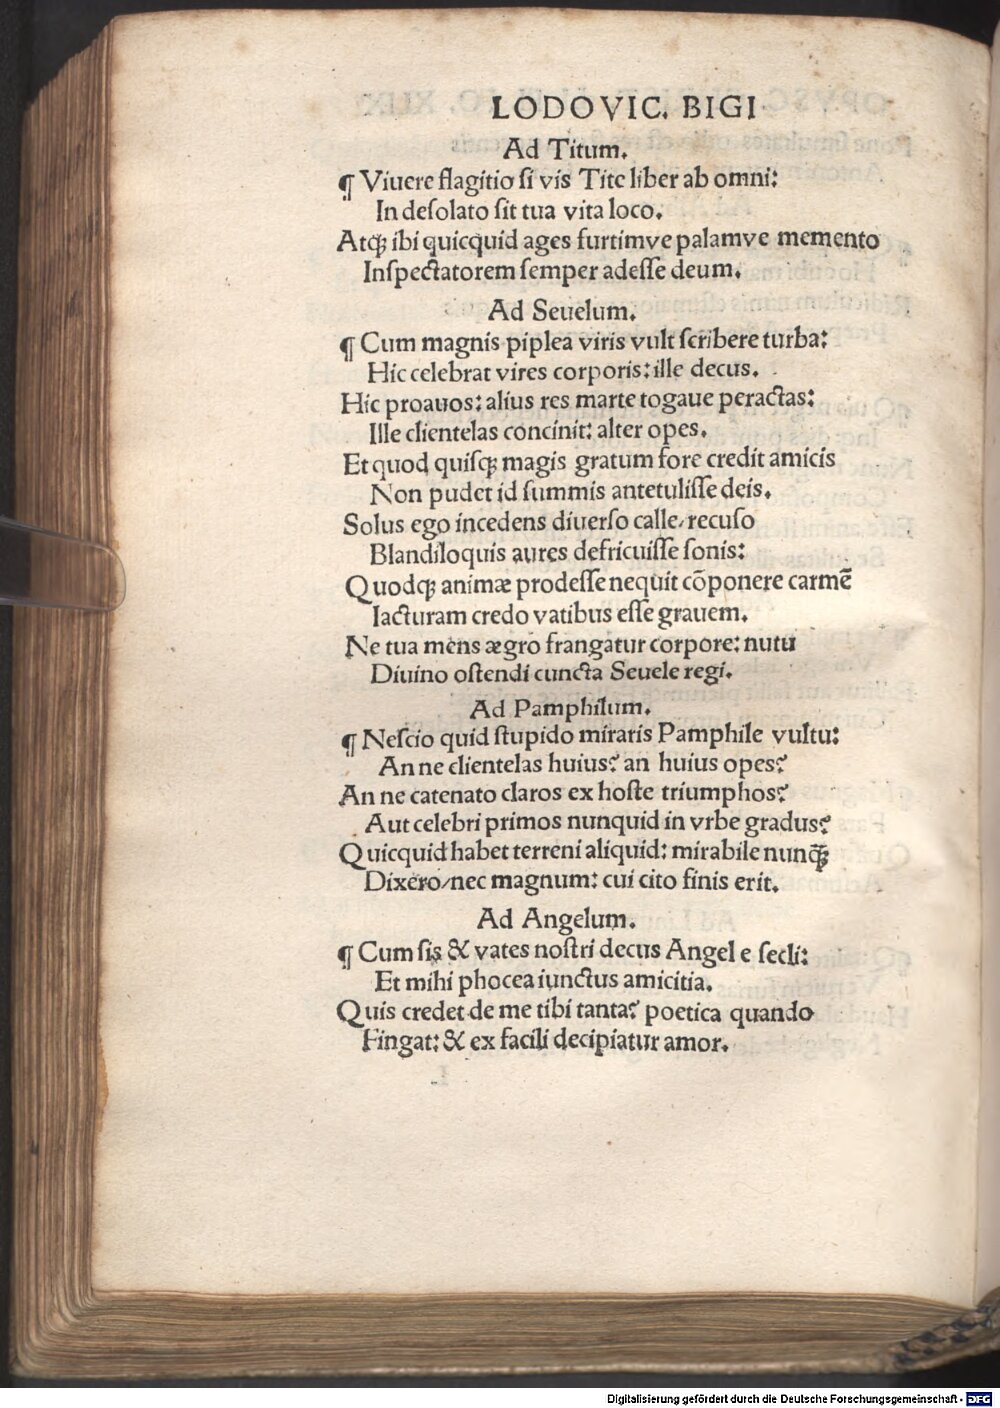 LODOVIC. BIGI
Ad Titum.
¶ Viuere flagitio ſi vis Tite liber ab omni:
In deſolato ſit tua vita loco.
Atqꝫ ibi quicquid ages furtimve palamve memento
Inſpectatorem ſemper adeſſe deum.
Ad Seuelum.
¶ Cum magnis piplea viris vult ſcribere turba:
Hic celebrat vires corporis: ille decus.
Hic proauos: alius res marte togaue peractas:
Ille clientelas concinit: alter opes.
Et quod quiſqꝫ magis gratum fore credit amicis
Non pudet id ſummis antetuliſſe deis.
Solus ego incedens diuerſo calle/ recuſo
Blandiloquis aures defricuiſſe ſonis:
Quodqꝫ animæ prodeſſe nequit cōponere carmē
Iacturam credo vatibus eſſe grauem.
Ne tua mens ægro frangatur corpore: nutu
Diuino oſtendi cuncta Seuele regi.
Ad Pamphilum.
¶ Neſcio quid ſtupido miraris Pamphile vultu:
An ne clientelas huius? an huius opes?
An ne catenato claros ex hoſte triumphos?
Aut celebri primos nunquid in vrbe gradus?
Quicquid habet terreni aliquid: mirabile nunq̄ꝫ
Dixero/ nec magnum: cui cito finis erit.
Ad Angelum.
¶ Cum ſis & vates noſtri decus Angel e ſecli:
Et mihi phocea iunctus amicitia.
Quis credet de me tibi tanta? poetica quando
Fingat: & ex facili decipiatur amor.
Digitalisierung gefördert durch die Deutsche Forschungsgemeinschaft - DFG